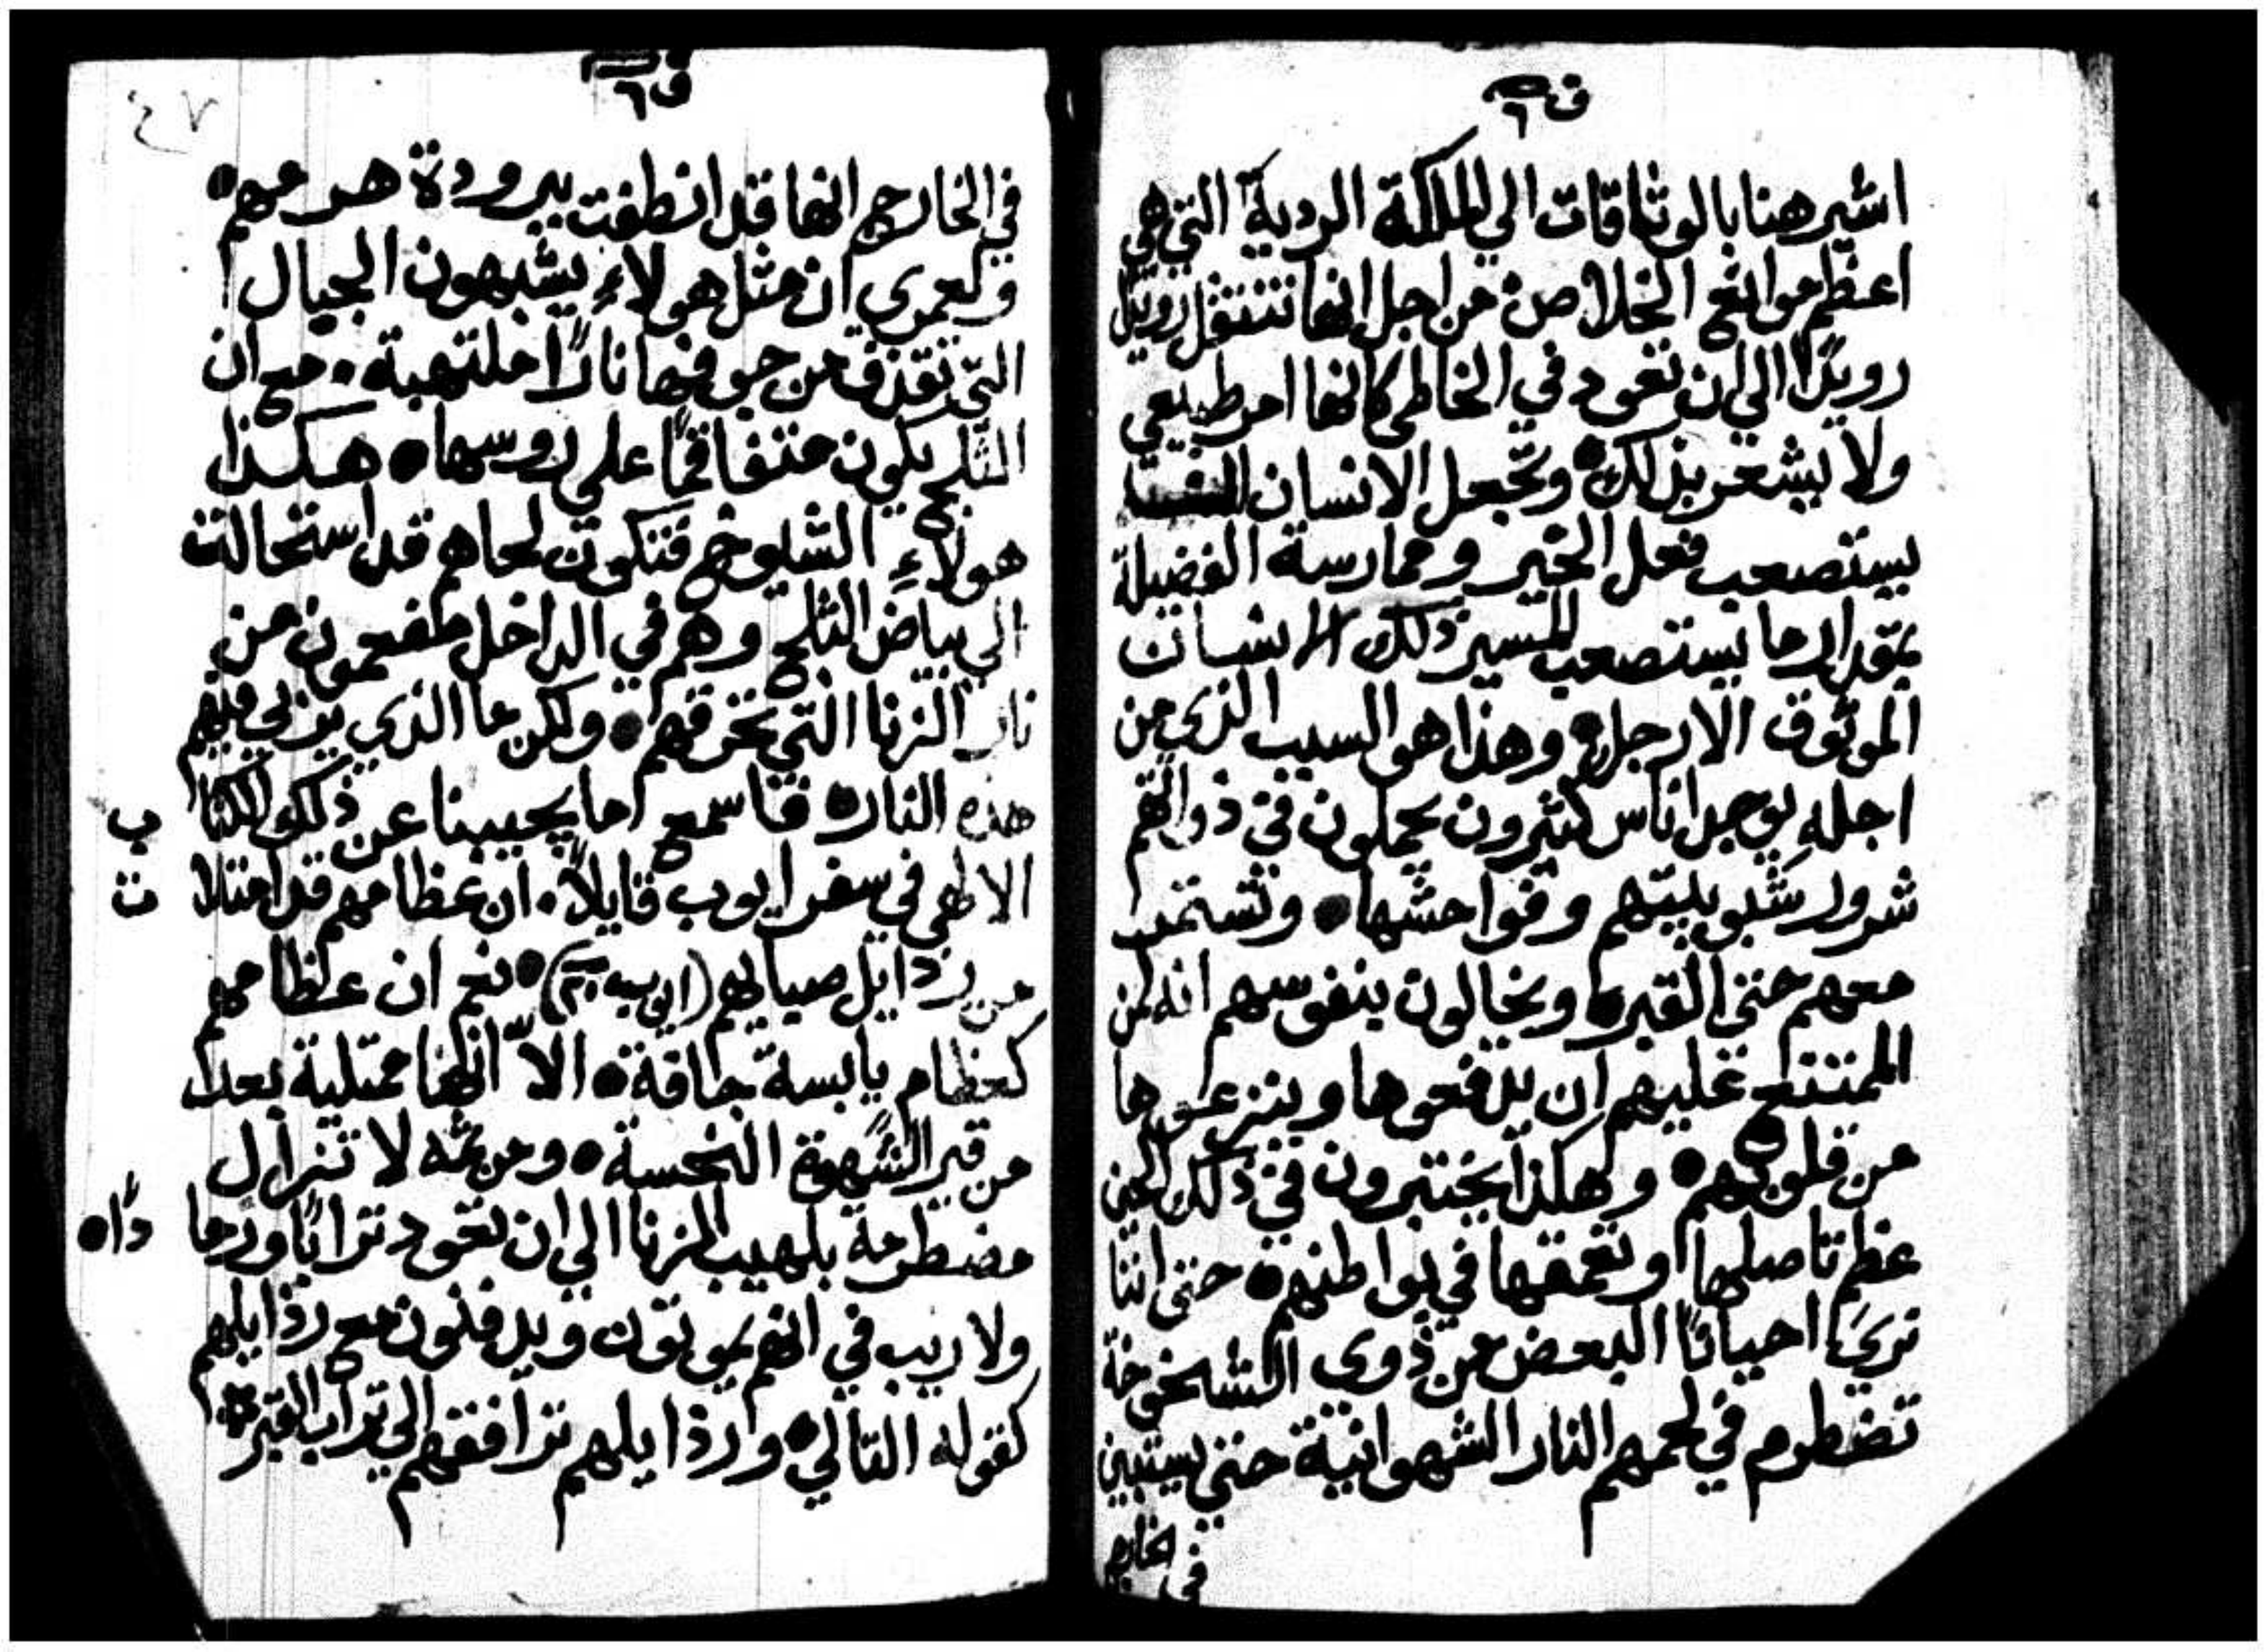 ف٦
اشير هنا بالوثاقات الي الملكة الردية التي هي
اعظم موانع الخلاص من اجل انها تتنقل رويدًا
رويدًا الي ان تعود في الخاطي كانها امر طبيعي
ولا يشعر بذلك ۝ وتجعل الانسان
يستصعب فعل الخير وممارسة الفضيلة
بمقدار ما يستصعب المسير ذلك الانسان
الموثوق الارجل ۝ وهذا هو السبب الذي من
اجله يوجد اناس كثيرون يحملون في ذواتهم
شرور شبوبيتهم وفواحشها ۝ وتستمر
معهم حتي القبر ۝ ويخالون بنفوسهم انه لمن
الممتنع عليهم ان يدفعوها وينزعوها
من قلوبهم ۝ وهكذا يختبرون في ذلك الحين
عظم تاصلها وتعمقها في بواطنهم ۝ حتي اننا
نري احيانًا البعض من ذوي الشيخوخة
تضطرم في لحمهم النار الشهوانية حتي يستبين
في الخارج
ف٦
٤٧
في الخارج انها قد انطفت ببرودة هرمهم ۝
ولعمري ان مثل هولاءِ يشبهون الجبال
التي تقذف من جوفها نارًا ملتهبة ۰ مع ان
الثلج يكون متفاقمًا علي روسها ۝ هكذا
هولاءِ الشيوخ فتكون لحاهم قد استحالت
الي بياض الثلج وهم في الداخل مفعمون من
نار الزنا التي تحرقهم ۝ ولكن ما الذي يربي فيهم
هذه النار ۝ فاسمع ما يجيبنا عن ذلك الكتاب
الالهي في سفر ايوب قايلاً ۰ ان عظامهم قد امتلات
من رذايل صباهم (ايوب ٢٠) ۝ نعم ان عظامهم
كعظام يابسة جافة ۝ الاّ انها ممتلية بعد
من قير الشهوة النجسة ۝ ومن ثمه لا تزال
مضطرمة بلهيب الزنا الي ان تعود ترابًا ورمادًا ۝
ولا ريب في انهم يموتون ويدفنون مع رذايلهم
كقوله التالي ۝ ورذايلهم ترافقهم الي تراب القبر